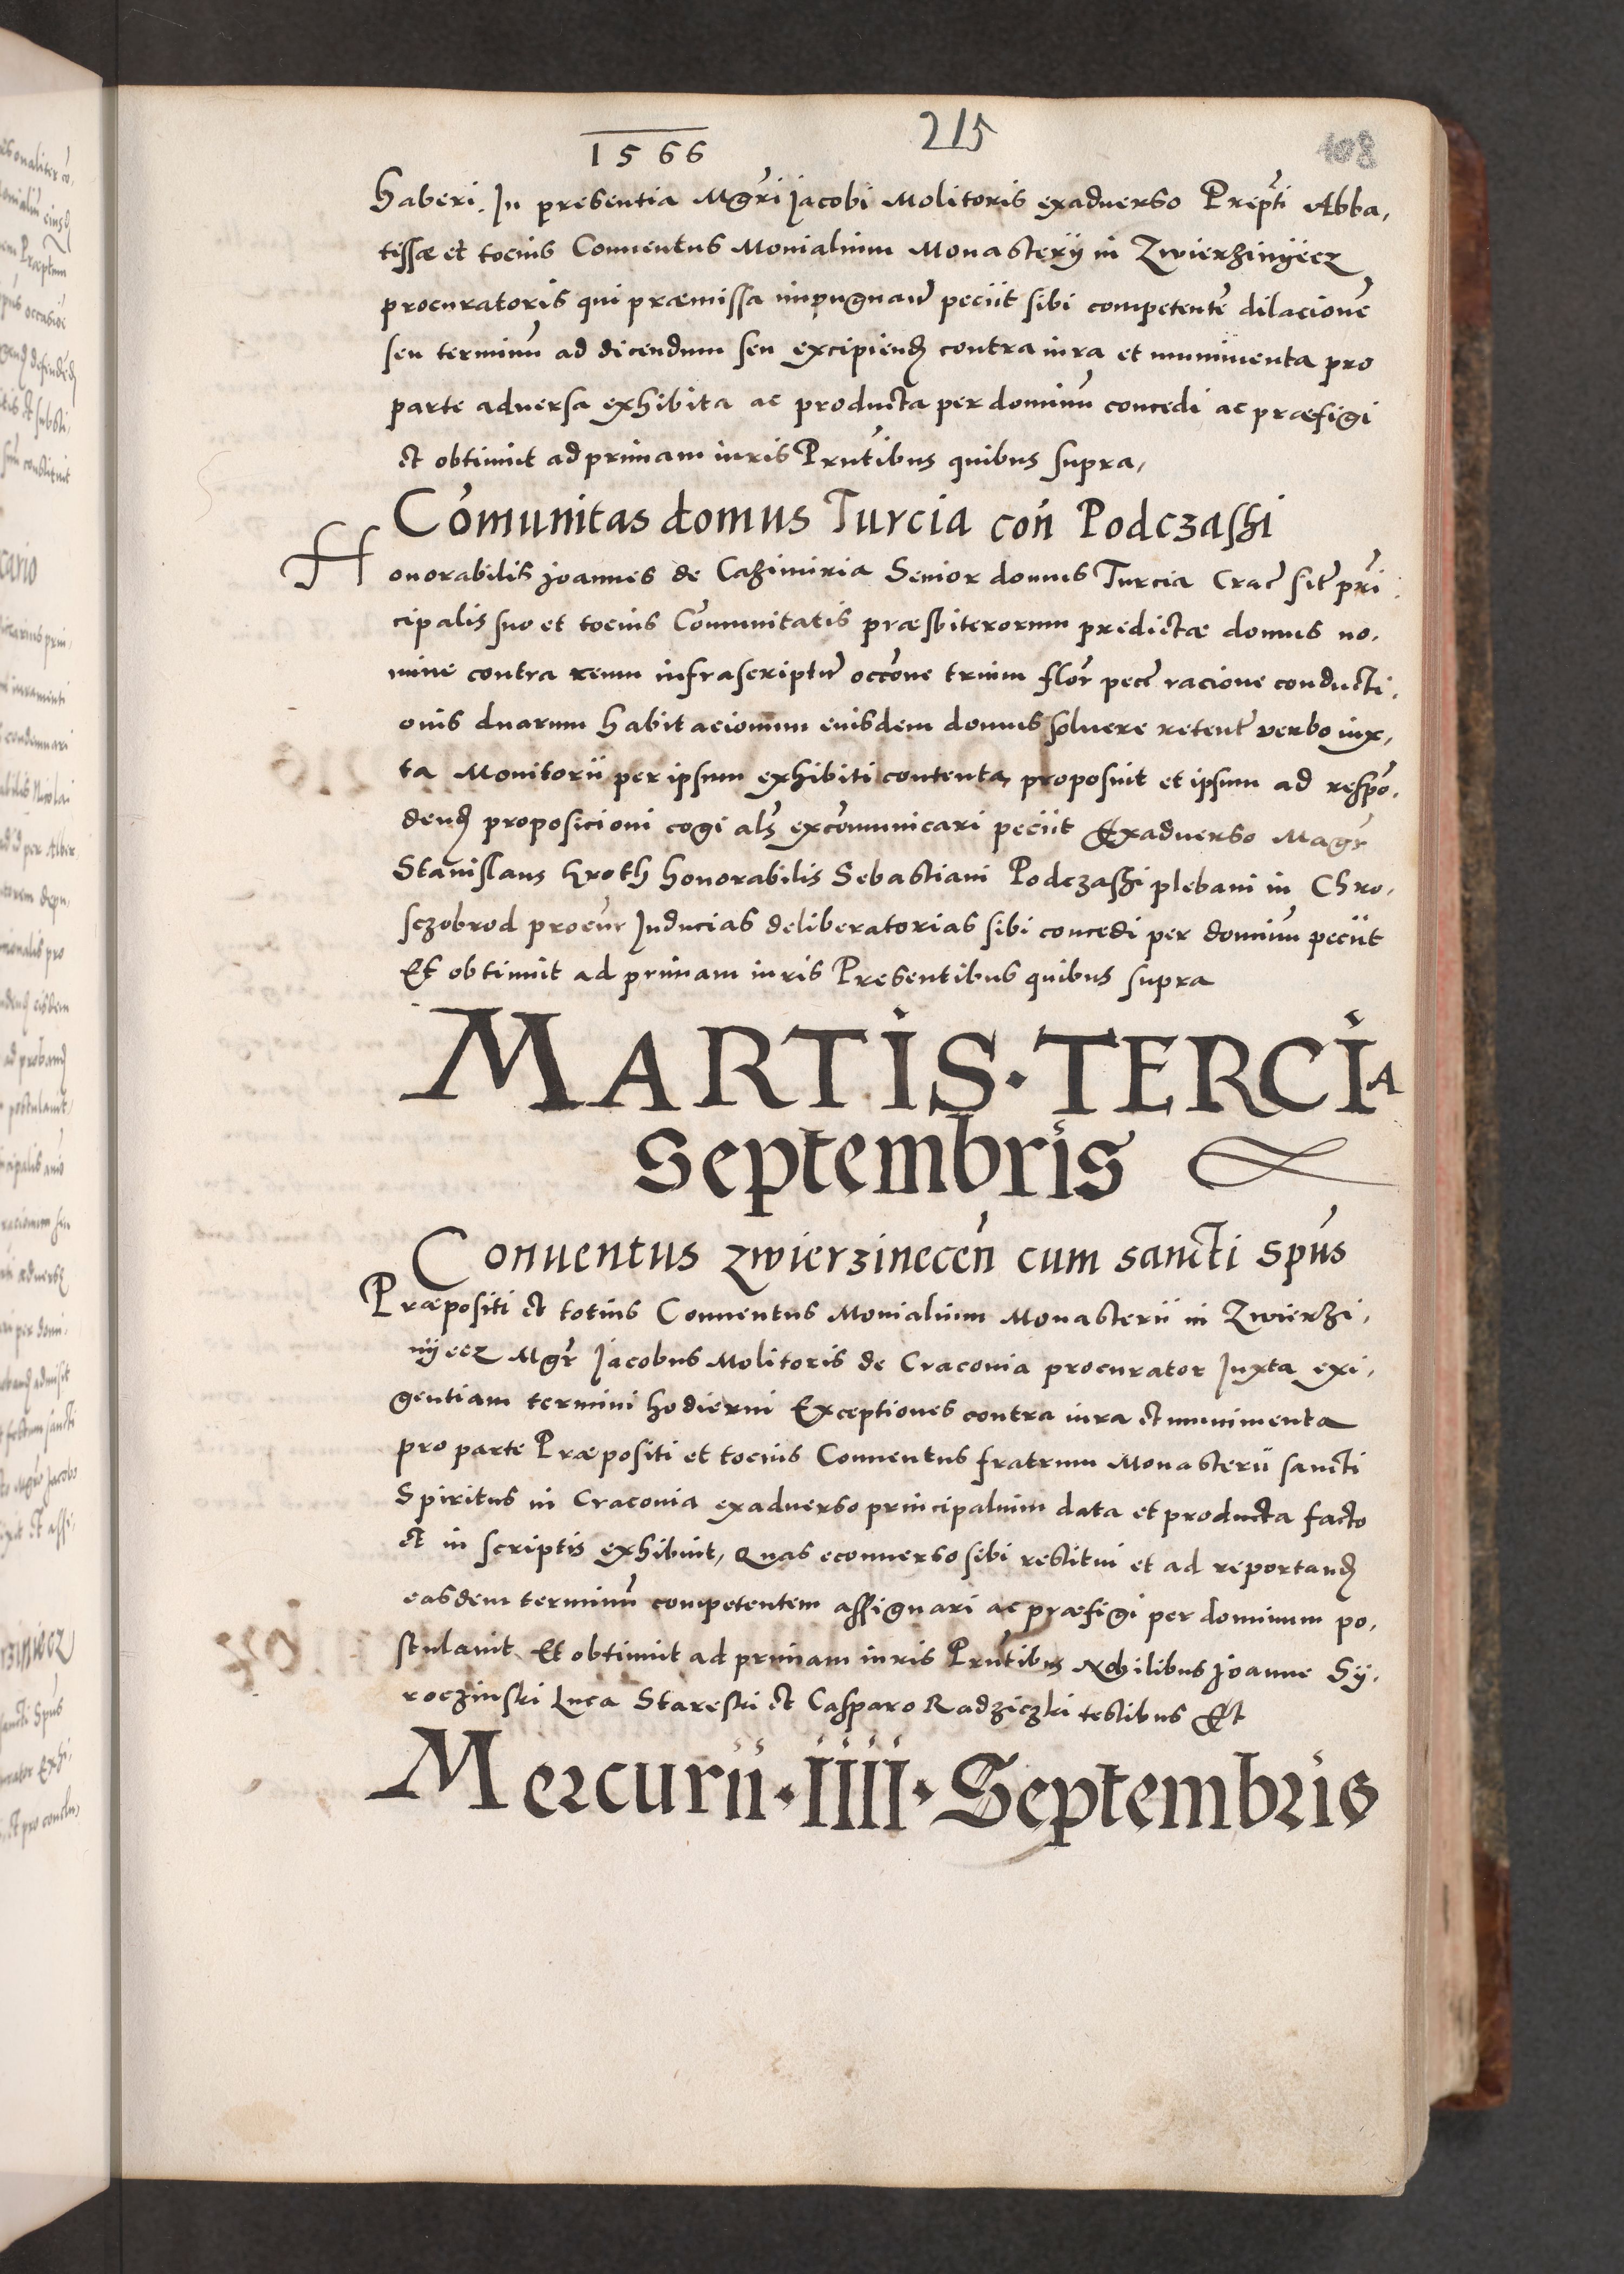 215
108
1566
haberi. In presentia Mgri Jacobi Molitoris exaduerso Prepti Abba,
tissæ et tocius Conuentus Monialium Monastery in Zwierzinyecz
procuratoris qui præmissa impugnan peciit sibi competente dilacione
seu terminu ad dicendum seu excipiend contra iura et munimenta pro
parte aduersa exhibita ac producta per dominu concedi ac præfigi
et obtinuit ad primam iuris Prntibus quibus supra,
Comunitas domus Turcia con Podczaski
Honorabilis Joannes de Cazimiria Senior domus Turcia Crac sit pri,
cipalis suo et tocius Comunitatis præsbiterorum predictæ domus no,
mine contra reum infrascriptu occone trium flor pec racione conducti,
onis duarum habitacionum eiusdem domus soluere retent verbo iux,
ta Monitorii per ipsum exhibiti contenta, proposuit et ipsum ad respo,
dend proposicioni cogi als excomunicari peciit Exaduerso Magr
Stanislaus Kroth honorabilis Sebastiani Podczaski plebani in Chro,
sczobrod procur Inducias deliberatorias sibi concedi per dominum peciit
Et obtinuit ad primam iuris Presentibus quibus supra
MARTIS · TERCIA
Septembris
Conuentus Zwierzinecen cum sancti Spus
Præpositi et totius Conuentus Monialium Monasterii in Zwierzi,
nyecz Mgr Jacobus Molitoris de Craconia procurator Juxta exi,
gentiam termini hodierni Exceptiones contra iura et munimenta
pro parte Præpositi et tocius Conuentus fratrum Monasterii sancti
Spiritus in Craconia exaduerso principalium data et producta facto
et in scriptis exhibuit, Quas econuerso sibi restitui et ad reportand
easdem terminu competentem assignari ac præfigi per dominum po,
stulauit Et obtinuit ad primam iuris Prntibus Nobilibus Joanne Sy,
roczinski Luca Stareski et Casparo Radziczki testibus Et
Mercurii · IIII · Septembris